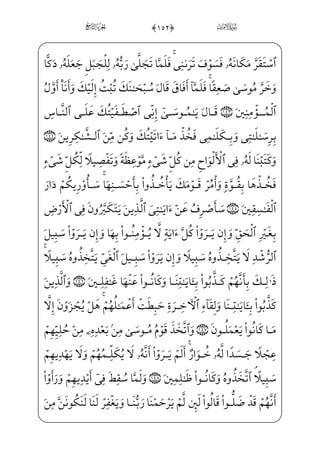 الجزء التاسع ﴿١٥٢﴾ سورة الأعراف
ٱسۡتَقَرَّ مَكَانَهُۥ فَسَوۡفَ تَرَىٰنِيۚ فَلَمَّا تَجَلَّىٰ رَبُّهُۥ لِلۡجَبَلِ جَعَلَهُۥ دَكّٗا
وَخَرَّ مُوسَىٰ صَعِقٗاۚ فَلَمَّآ أَفَاقَ قَالَ سُبۡحَٰنَكَ تُبۡتُ إِلَيۡكَ وَأَنَا۠ أَوَّلُ
ٱلۡمُؤۡمِنِينَ ١٤٣ قَالَ يَٰمُوسَىٰٓ إِنِّي ٱصۡطَفَيۡتُكَ عَلَى ٱلنَّاسِ
بِرِسَٰلَٰتِي وَبِكَلَٰمِي فَخُذۡ مَآ ءَاتَيۡتُكَ وَكُن مِّنَ ٱلشَّٰكِرِينَ ١٤٤
وَكَتَبۡنَا لَهُۥ فِي ٱلۡأَلۡوَاحِ مِن كُلِّ شَيۡءٖ مَّوۡعِظَةٗ وَتَفۡصِيلٗا لِّكُلِّ شَيۡءٖ
فَخُذۡهَا بِقُوَّةٖ وَأۡمُرۡ قَوۡمَكَ يَأۡخُذُواْ بِأَحۡسَنِهَاۚ سَأُوْرِيكُمۡ دَارَ
ٱلۡفَٰسِقِينَ ١٤٥ سَأَصۡرِفُ عَنۡ ءَايَٰتِيَ ٱلَّذِينَ يَتَكَبَّرُونَ فِي ٱلۡأَرۡضِ
بِغَيۡرِ ٱلۡحَقِّ وَإِن يَرَوۡاْ كُلَّ ءَايَةٖ لَّا يُؤۡمِنُواْ بِهَا وَإِن يَرَوۡاْ سَبِيلَ
ٱلرُّشۡدِ لَا يَتَّخِذُوهُ سَبِيلٗا وَإِن يَرَوۡاْ سَبِيلَ ٱلۡغَيِّ يَتَّخِذُوهُ سَبِيلٗاۚ
ذَٰلِكَ بِأَنَّهُمۡ كَذَّبُواْ بِـَٔايَٰتِنَا وَكَانُواْ عَنۡهَا غَٰفِلِينَ ١٤٦ وَٱلَّذِينَ
كَذَّبُواْ بِـَٔايَٰتِنَا وَلِقَآءِ ٱلۡأٓخِرَةِ حَبِطَتۡ أَعۡمَٰلُهُمۡۚ هَلۡ يُجۡزَوۡنَ إِلَّا
مَا كَانُواْ يَعۡمَلُونَ ١٤٧ وَٱتَّخَذَ قَوۡمُ مُوسَىٰ مِنۢ بَعۡدِهِۦ مِنۡ حُلِيِّهِمۡ
عِجۡلٗا جَسَدٗا لَّهُۥ خُوَارٌۚ أَلَمۡ يَرَوۡاْ أَنَّهُۥ لَا يُكَلِّمُهُمۡ وَلَا يَهۡدِيهِمۡ
سَبِيلًاۘ ٱتَّخَذُوهُ وَكَانُواْ ظَٰلِمِينَ ١٤٨ وَلَمَّا سُقِطَ فِيٓ أَيۡدِيهِمۡ وَرَأَوۡاْ
أَنَّهُمۡ قَدۡ ضَلُّواْ قَالُواْ لَئِن لَّمۡ يَرۡحَمۡنَا رَبُّنَا وَيَغۡفِرۡ لَنَا لَنَكُونَنَّ مِنَ